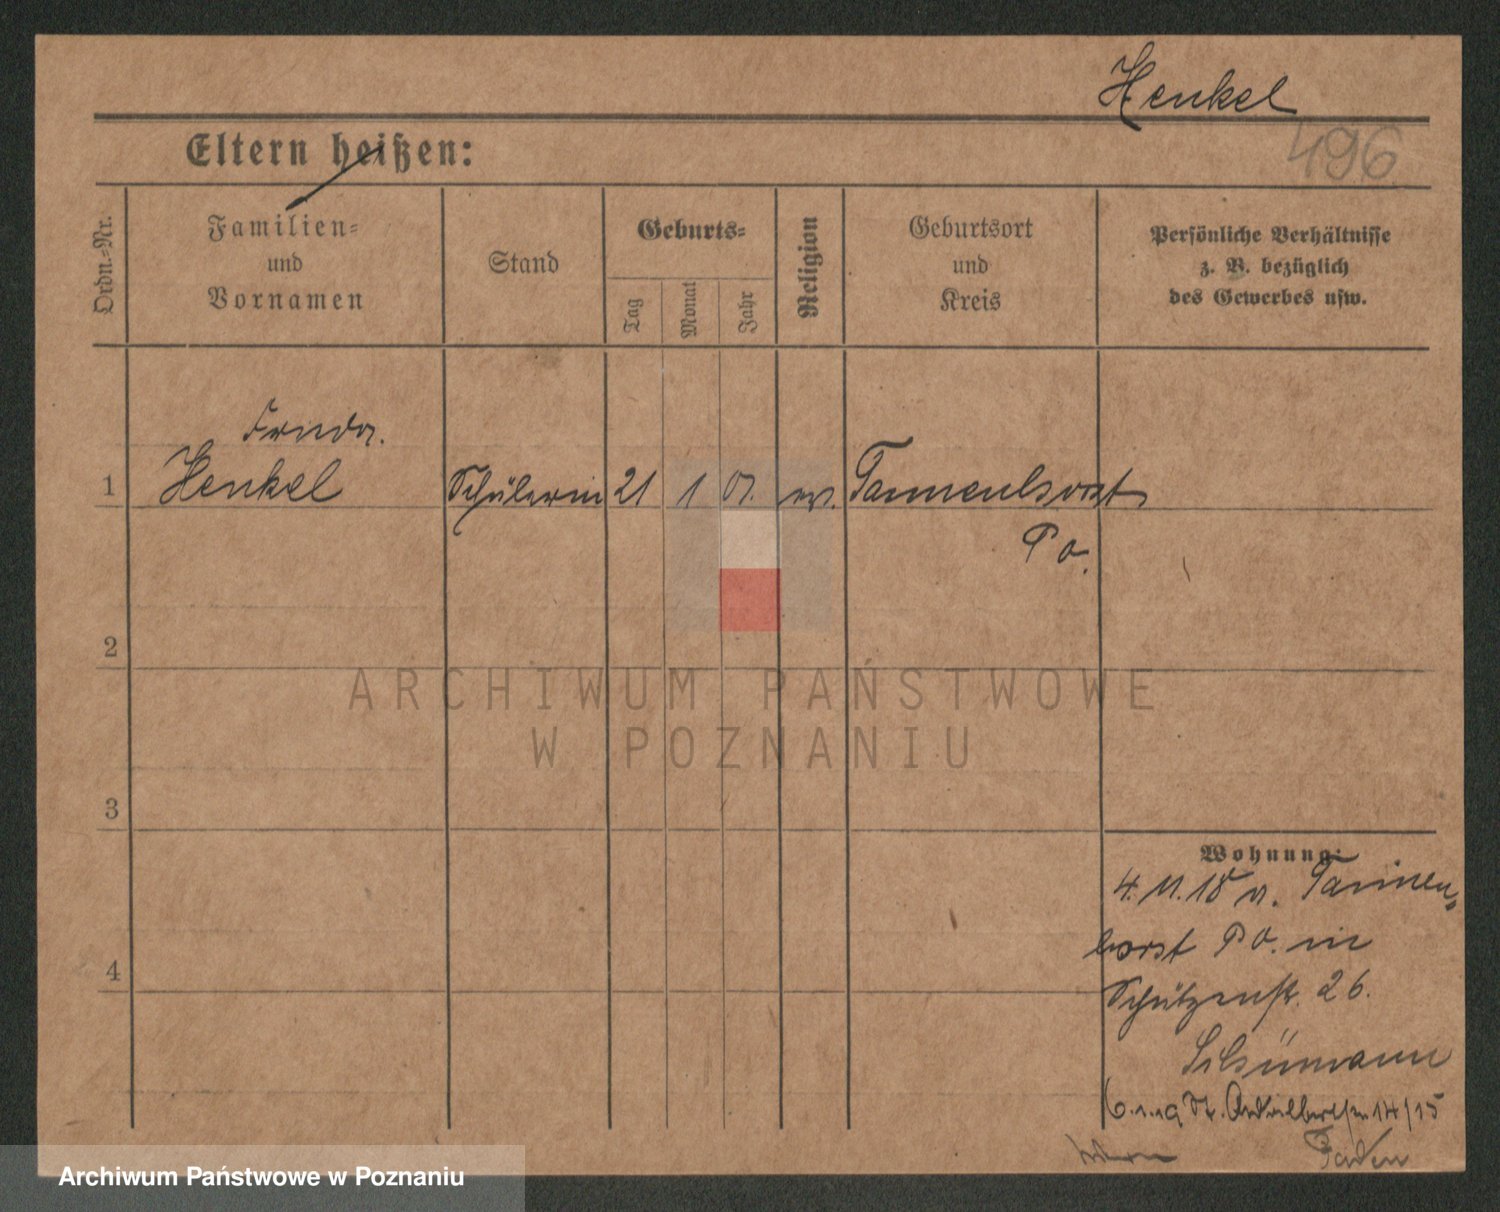 Henkel
496
Eltern heißen:
Ordn.-Nr.
Familien-
und
Vornamen
Stand
Geburts-
Tag
Monat
Jahr
Religion
Geburtsort
und
Kreis
Persönliche Verhältnisse
z. B. bezüglich
des Gewerbes usw.
Frieda
1 Henkel Schülerin 21 1 01. ev. Tannenhorst
Po.
2
ARCHIWUM PAŃSTWOWE
W POZNANIU
3
Wohnung:
4. 11. 18 a. Tannen-
horst Po. in
4
Schützenstr. 26.
Schümann
6. 1. 19 14/15
Archiwum Państwowe w Poznaniu